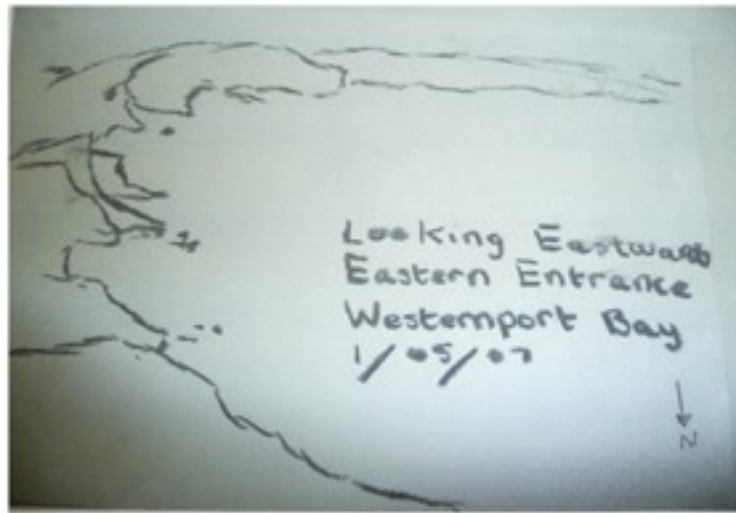 Looking Eastward
Eastern Entrance
Westernport Bay
1/05/07
N